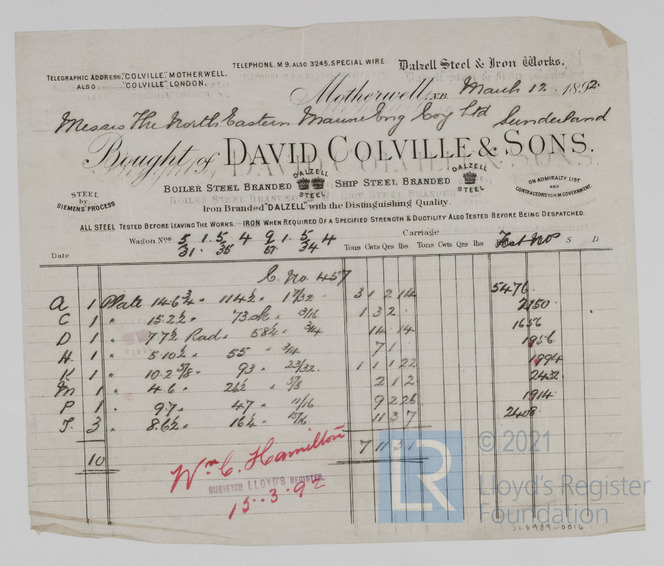 TELEPHONE. M 9, ALSO 3245, SPECIAL WIRE.
Dalzell Steel & Iron Works.
TELEGRAPHIC ADDRESS, "COLVILLE", MOTHERWELL.
ALSO "COLVILLE" LONDON.
Motherwell, N.B. March 12 1892
Messrs The North Eastern Marine Eng Coy Ltd Sunderland
Bought of DAVID COLVILLE & SONS.
STEEL by SIEMENS' PROCESS
BOILER STEEL BRANDED DALZELL STEEL SHIP STEEL BRANDED DALZELL STEEL
ON ADMIRALTY LIST AND CONTRACTORS TO H.M. GOVERNMENT.
Iron Branded "DALZELL" with the Distinguishing Quality.
ALL STEEL TESTED BEFORE LEAVING THE WORKS. — IRON WHEN REQUIRED OF A SPECIFIED STRENGTH & DUCTILITY ALSO TESTED BEFORE BEING DESPATCHED.
Wagon Nos 5 1 . 5 4 9 1 . 5 4 Carriage Test Nos S D
31 . 35 57 34 Tons Cwts Qrs lbs Tons Cwts Qrs lbs
Date
C. No. 457
A 1 Plate 14.6 3/4 114 1/2 3 1 2 14 5476
C 1 " 15.2 1/2 73 3/16 1 3 2 2150
D 1 " 7.7 1/2 Rad. 58 1/2 3/4 14 14 1656
H 1 " 5.10 1/2 55 3/4 7 1 1956
K 1 " 10.2 5/8 93 23/32 1 1 1 22 1994
M 1 " 4.6 26 1/2 5/8 2 1 2 2432
P 1 " 9.7 47 11/16 9 2 26 1914
T 3 " 8.6 1/2 16 1/2 11 3 7 2408
10 7 11 3 1
Wm C. Hamilton
SURVEYOR LLOYD'S REGISTER.
15.3.92
LR
© 2021
Lloyd's Register
Foundation
SLD989-0014